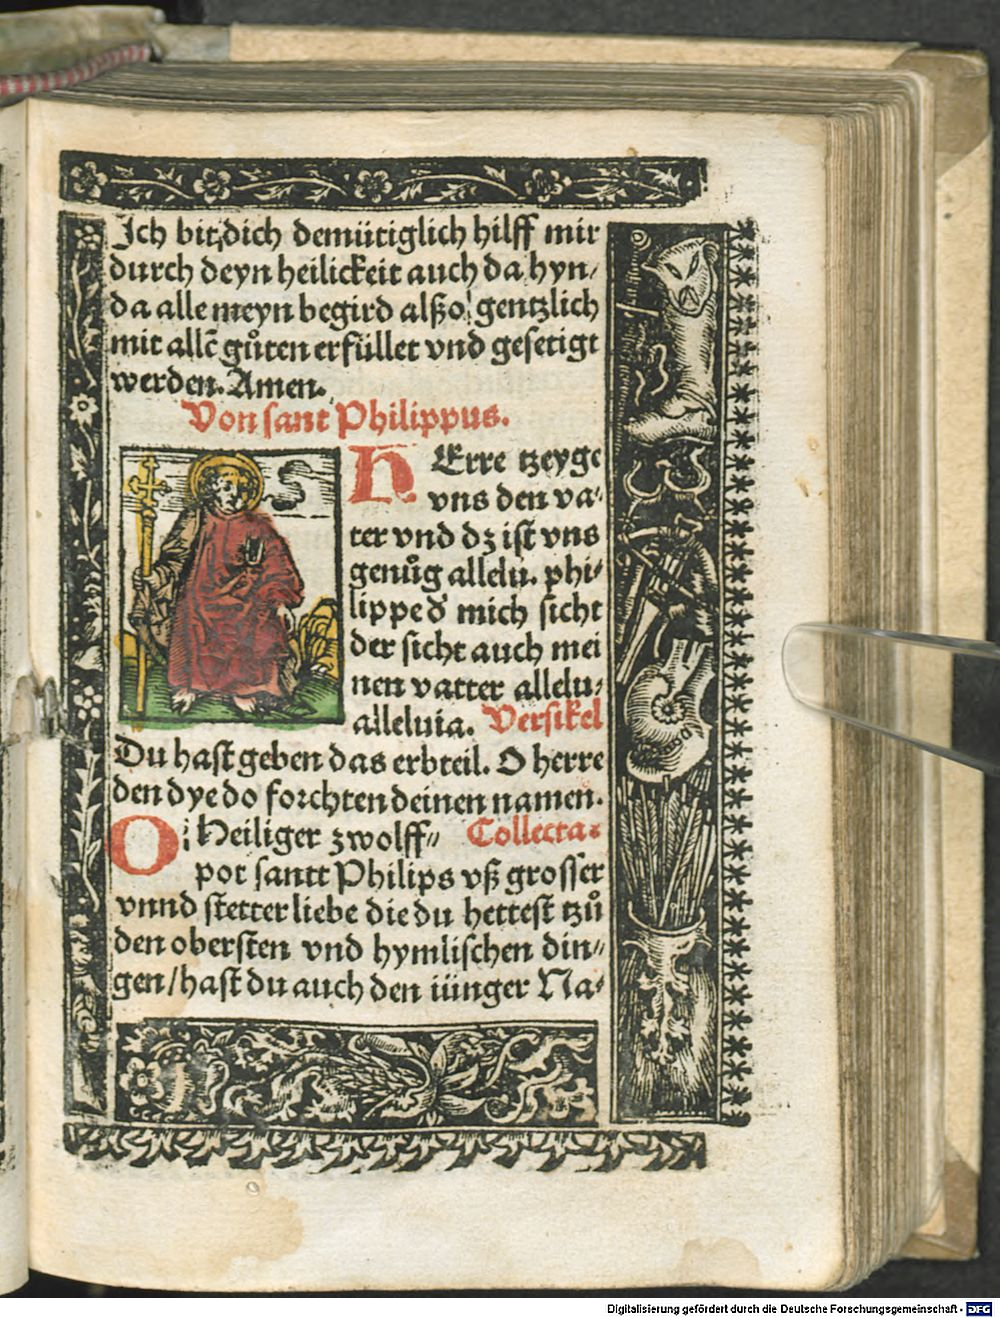 Ich bit dich demütiglich hilff mir
durch deyn heilickeit auch da hyn/
da alle meyn begird alßo gentzlich
mit allē gůten erfüllet vnd gesetigt
werden. Amen.
Von sant Philippus.
HErre tzeyge
vns den va⸗
ter vnd dz ist vns
genůg allelu. phi⸗
lippe d' mich sicht
der sicht auch mei
nen vatter allelu⸗
alleluia. Versikel
Du hast geben das erbteil. O herre
den dye do forchten deinen namen.
O Heiliger zwolff⸗ Collecta.
pot santt Philips vß grosser
vnnd stetter liebe die du hettest tzů
den obersten vnd hymlischen din⸗
gen/hast du auch den iünger Na⸗
Digitalisierung gefördert durch die Deutsche Forschungsgemeinschaft - DFG